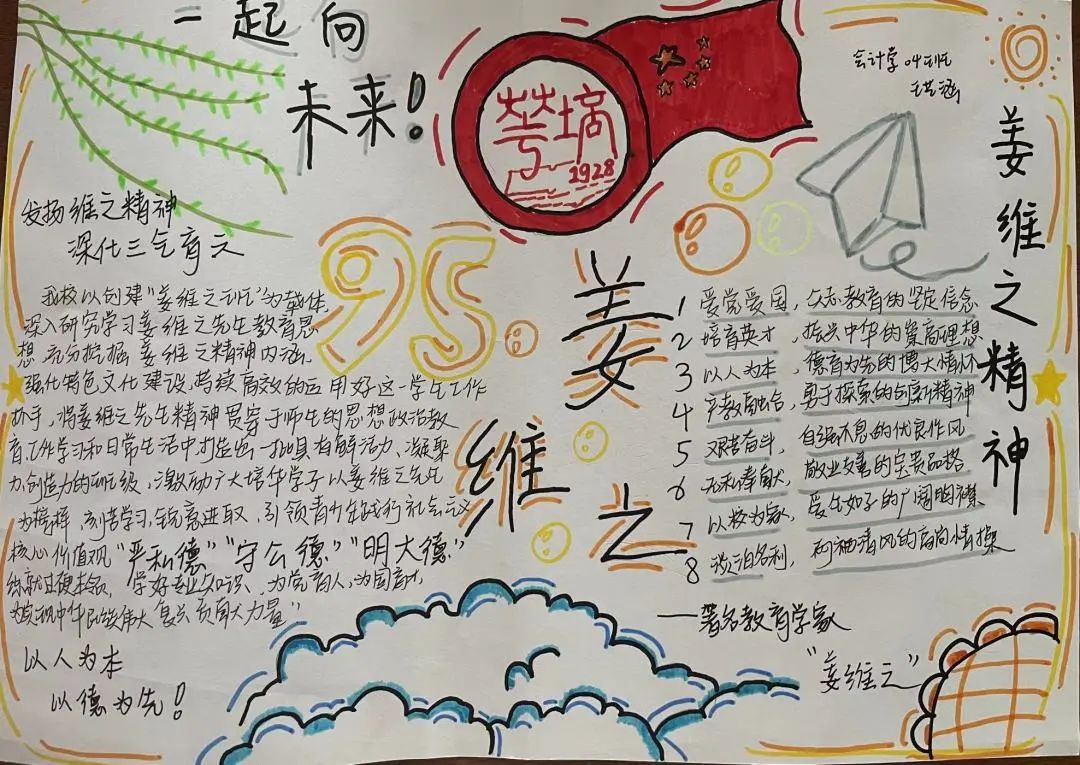 一起向
未来!
1928
会计学04班
发扬维之精神
深化三气育之
95
姜维之
姜维之精神
我校以创建"姜维之班"为载体
深入研究学习姜维之先生教育思
想 充分挖掘 姜维之精神内涵
强化特色文化建设,持续高效的应用好这一学生工作
抓手,将姜维之先生精神贯穿于师生的思想政治教
育,工作学习和日常生活中,打造出一批具有鲜活力、凝聚
力,创造力的班级,激励广大培华学子以姜维之先生
为榜样,刻苦学习,锐意进取,引领青年生践行社会主义
核心价值观"严私德""守公德""明大德"
练就过硬本领,学好专业知识,为党育人,为国育才
为实现中华民族伟大 贡献 力量"
以人为本
以德为先!
1 爱党爱国,矢志教育的坚定信念
2 培育英才,振兴中华的崇高理想
3 以人为本,德育为先的博大情怀
4 产教融合,勇于探索的创新精神
5 艰苦奋斗,自强不息的优良作风
6 无私奉献,敬业友善的宝贵品格
7 以校为家,爱生如子的广阔胸襟
8 淡泊名利,两袖清风的高尚情操
——著名教育学家
"姜维之"